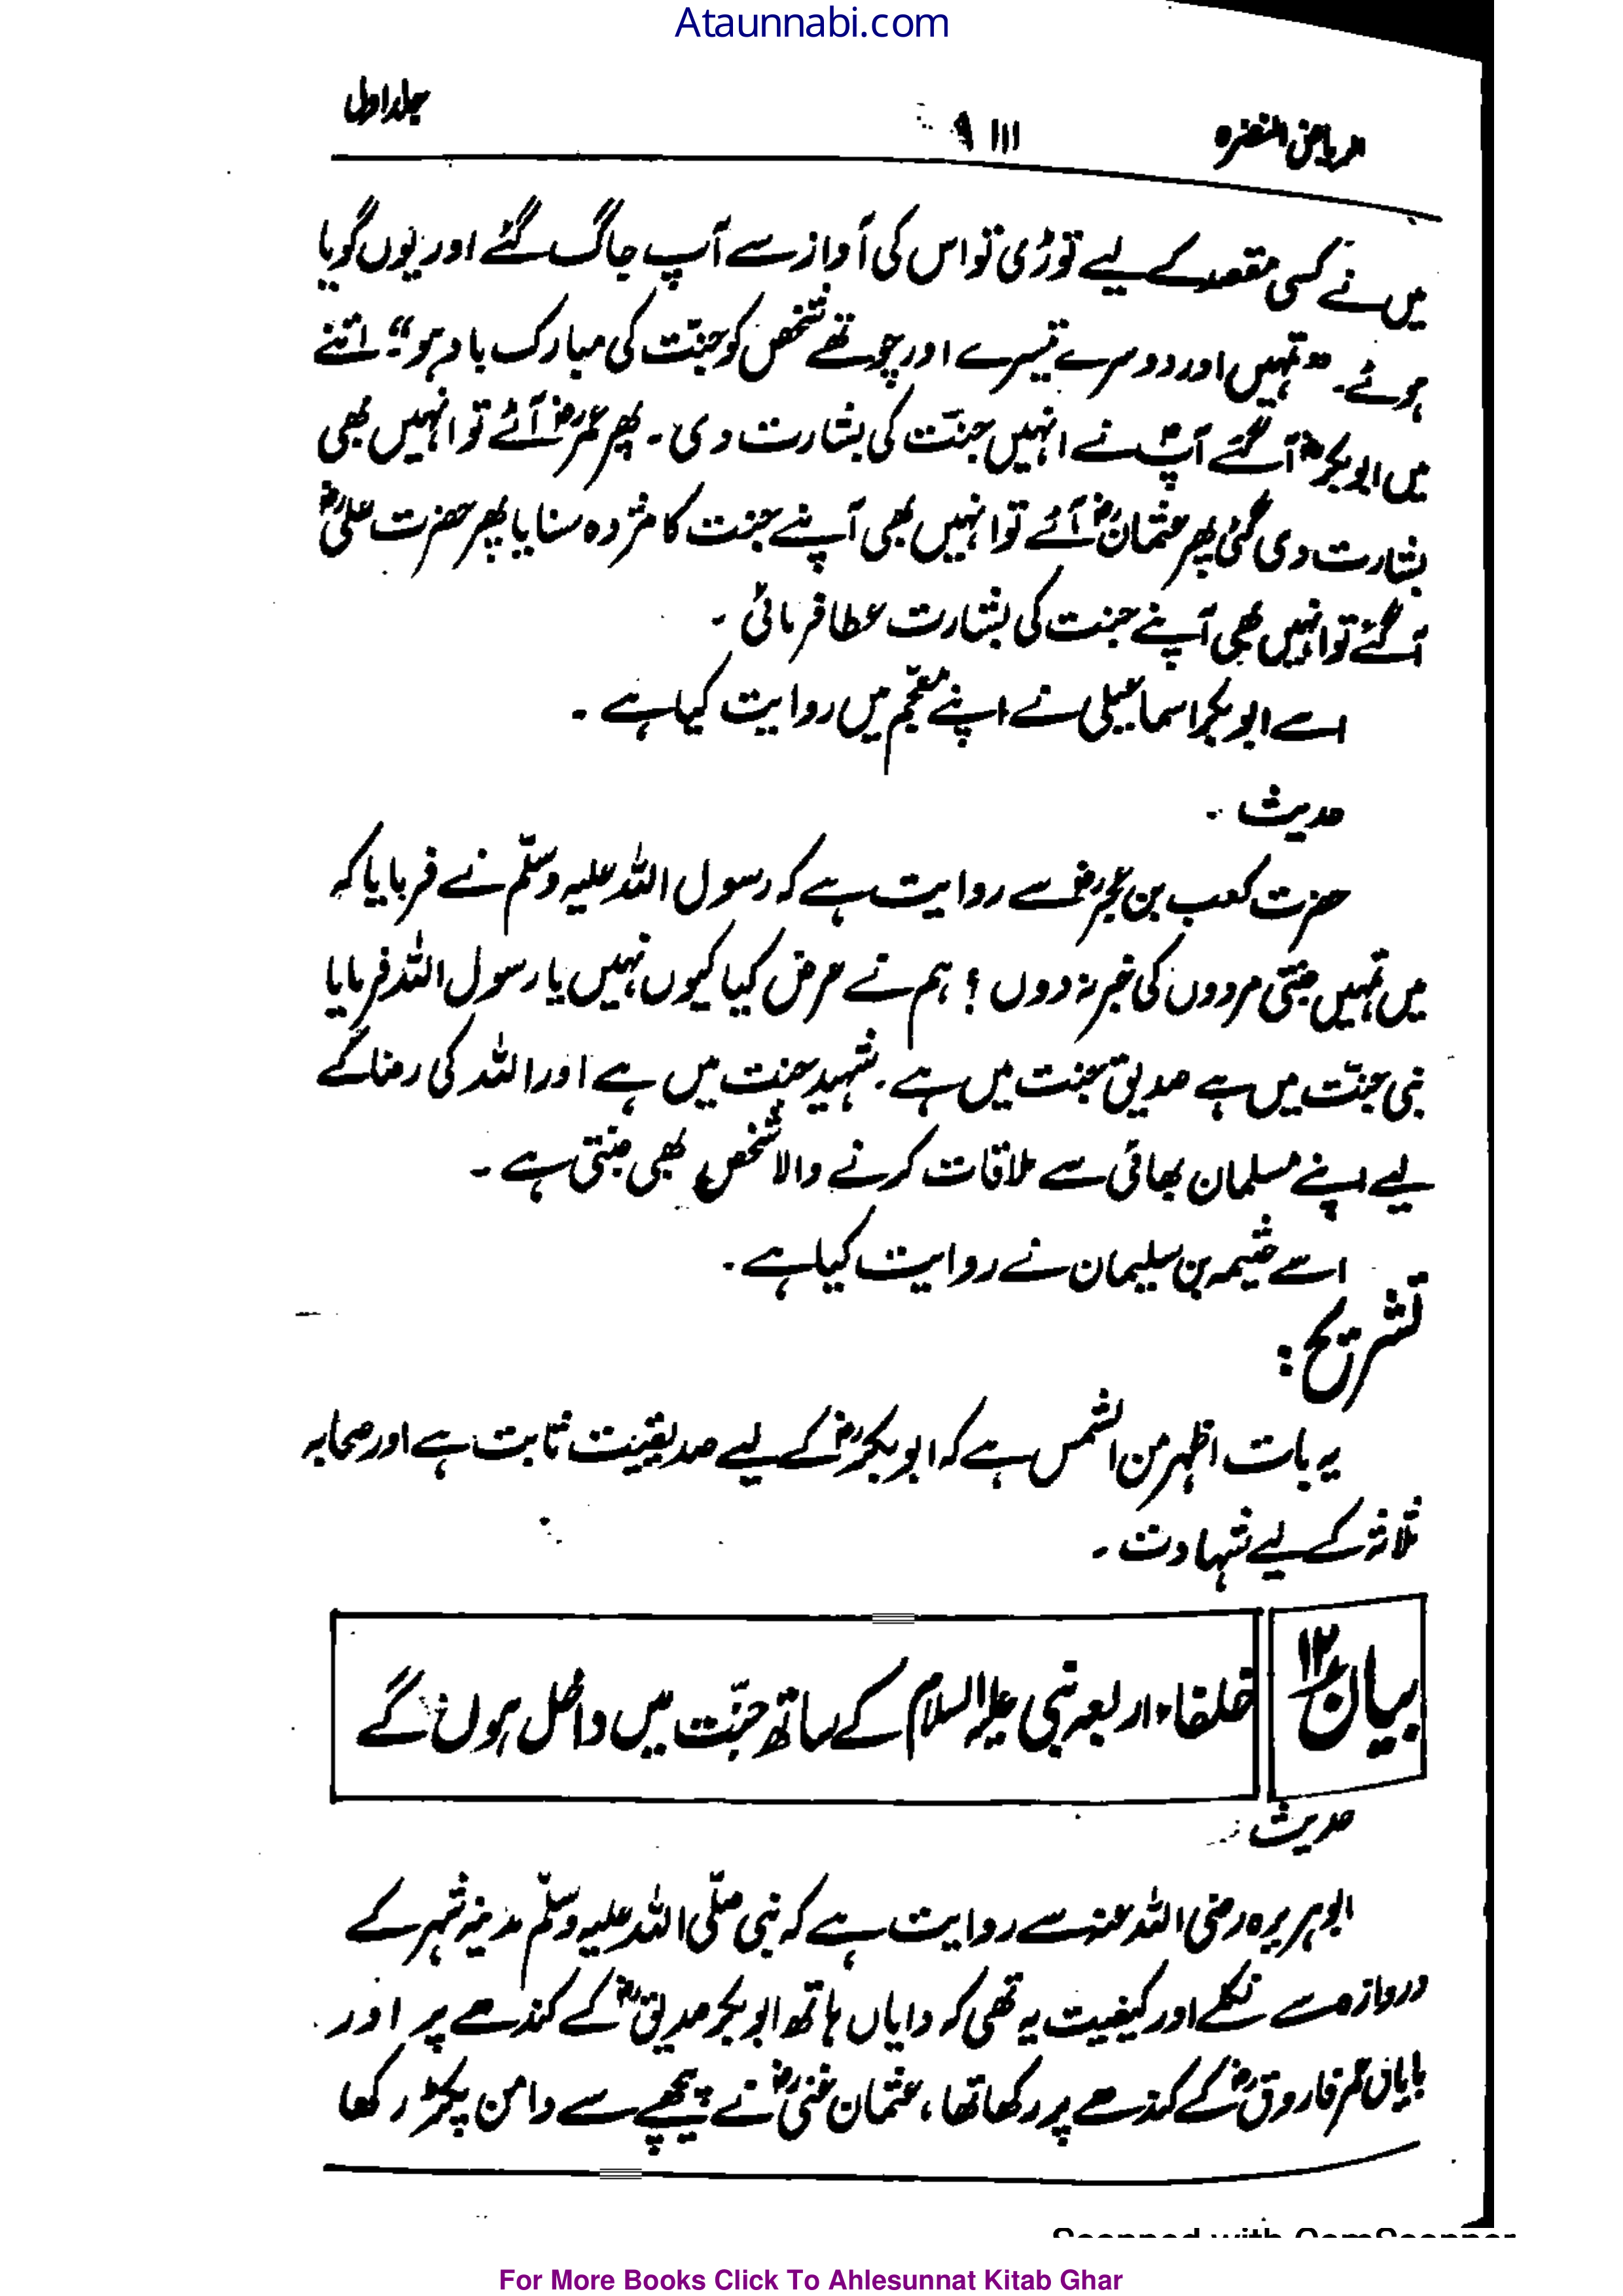 Ataunnabi.com
الریاض النضرہ
۱۱۱
جلد اول
میں نے کسی مقصد کے لیے توڑی تو اس کی آواز سے آپ جاگ گئے اور یوں گویا
ہوئے۔ ”تمہیں اور دوسرے تیسرے اور چوتھے شخص کو جنّت کی مبارک باد ہو“۔ اتنے
میں ابوبکرؓ آ گئے آپؐ نے انہیں جنّت کی بشارت دی۔ پھر عمرؓ آئے تو انہیں بھی
بشارت دی گئی پھر عثمانؓ آئے تو انہیں بھی آپ نے جنت کا مژدہ سنایا پھر حضرت علیؓ
آ گئے تو انہیں بھی آپ نے جنت کی بشارت عطا فرمائی ۔
اسے ابوبکر اسماعیلی نے اپنے معجم میں روایت کیا ہے ۔
حدیث ۔
حضرت کعب بن عجرہؓ سے روایت ہے کہ رسول اللہ علیہ وسلّم نے فرمایا کہ
میں تمہیں جنتی مردوں کی خبر نہ دوں ؟ ہم نے عرض کیا کیوں نہیں یا رسول اللہ فرمایا
نبی جنّت میں ہے صدیق جنت میں ہے ۔ شہید جنت میں ہے اور اللہ کی رضا کے
لیے اپنے مسلمان بھائی سے ملاقات کرنے والا شخص بھی جنتی ہے ۔
اسے خثیمہ بن سلیمان نے روایت کیا ہے ۔
تشریح :
یہ بات اظہر من الشمس ہے کہ ابوبکرؓ کے لیے صدیقیّت ثابت ہے اور صحابہ
ثلاثہ کے لیے شہادت ۔
بیان ۱۲
خلفاء اربعہ نبی علیہ السلام کے ساتھ جنّت میں داخل ہوں گے
حدیث
ابوہریرہ رضی اللہ عنہ سے روایت ہے کہ نبی صلّی اللہ علیہ وسلّم مدینہ شہر کے
دروازہ سے نکلے اور کیفیت یہ تھی کہ دایاں ہاتھ ابوبکر صدیقؓ کے کندھے پر اور
بایاں عمر فاروقؓ کے کندھے پر رکھا تھا ، عثمان غنیؓ نے پیچھے سے دامن پکڑ رکھا
Scanned with CamScanner
For More Books Click To Ahlesunnat Kitab Ghar